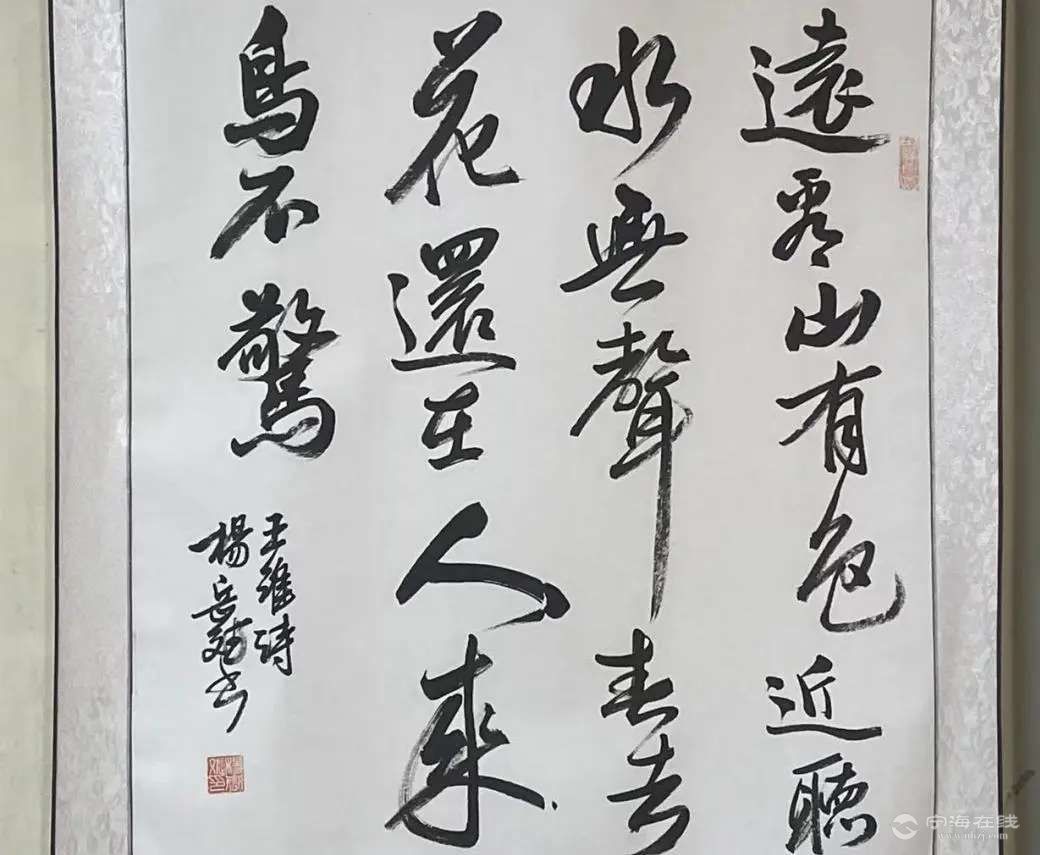 遠看山有色近聽
水無聲春去
花還在人來
鳥不驚
王維詩
楊岳斌書
向海在线
www.nhzj.com